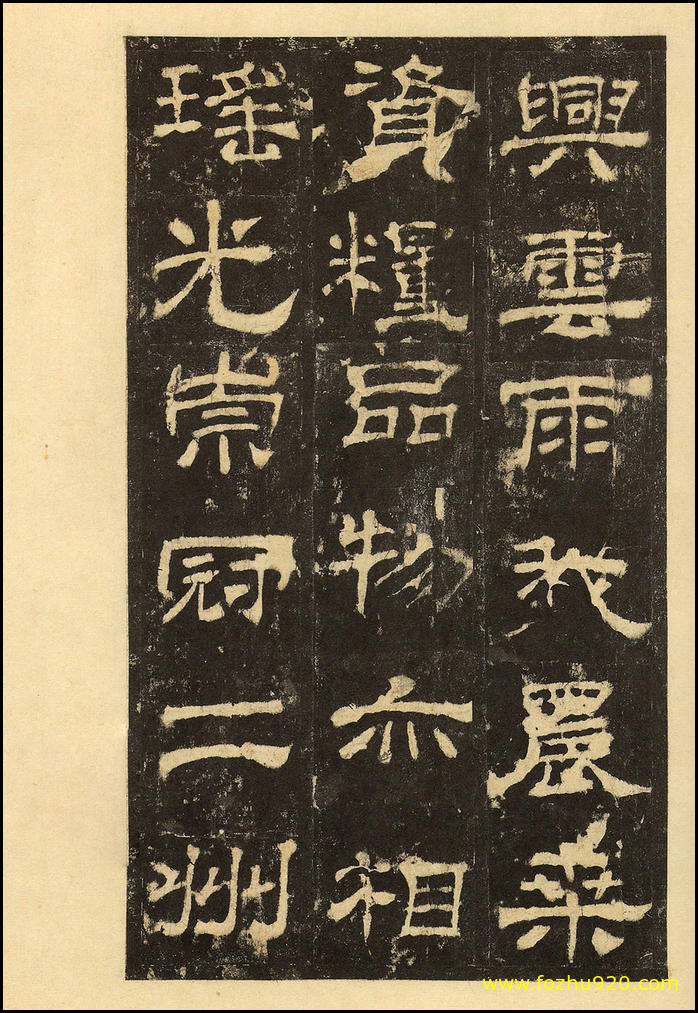 興雲雨我農桒
資糧品物亦相
瑤光崇冠二州
www.fozhu920.com